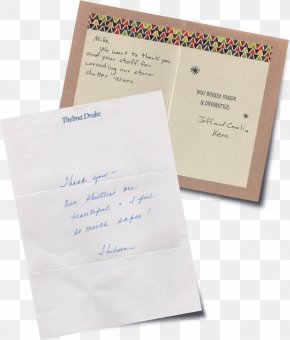 Mike,
We want to thank you
and your staff for
correcting our storm
shutter issues.
YOU REALLY MADE
A DIFFERENCE.
Jeff and Cecelia
Kern
Thelma Drake
Thank you—
Our shutters are
beautiful & I feel
so much safer!
Thelma